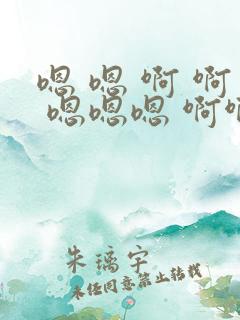 嗯 嗯 啊 啊
嗯嗯嗯 啊
朱璃宇
未经同意禁止转载